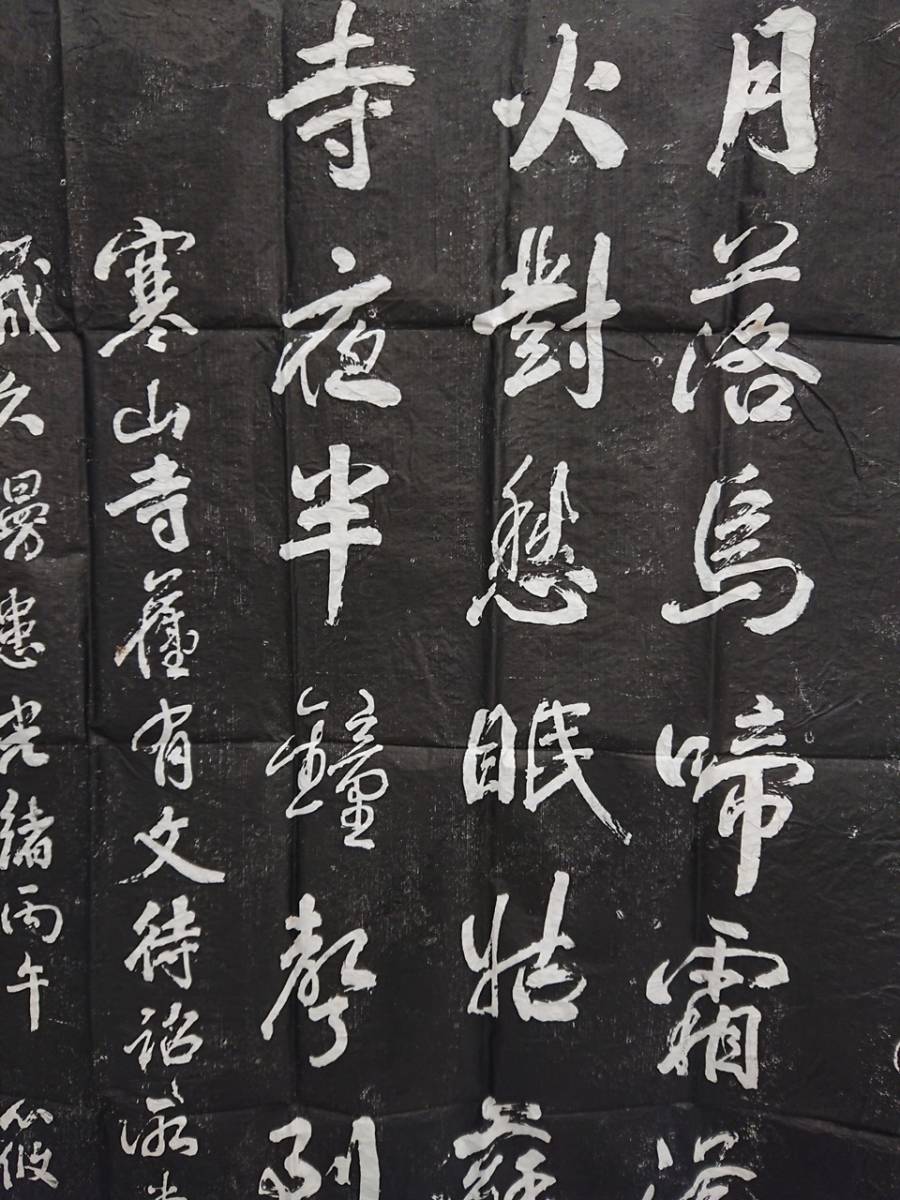 月落烏啼霜滿
火對愁眠姑蘇
寺夜半鐘聲到
寒山寺舊有文待詔詠
歲久漫漶光緒丙午筱